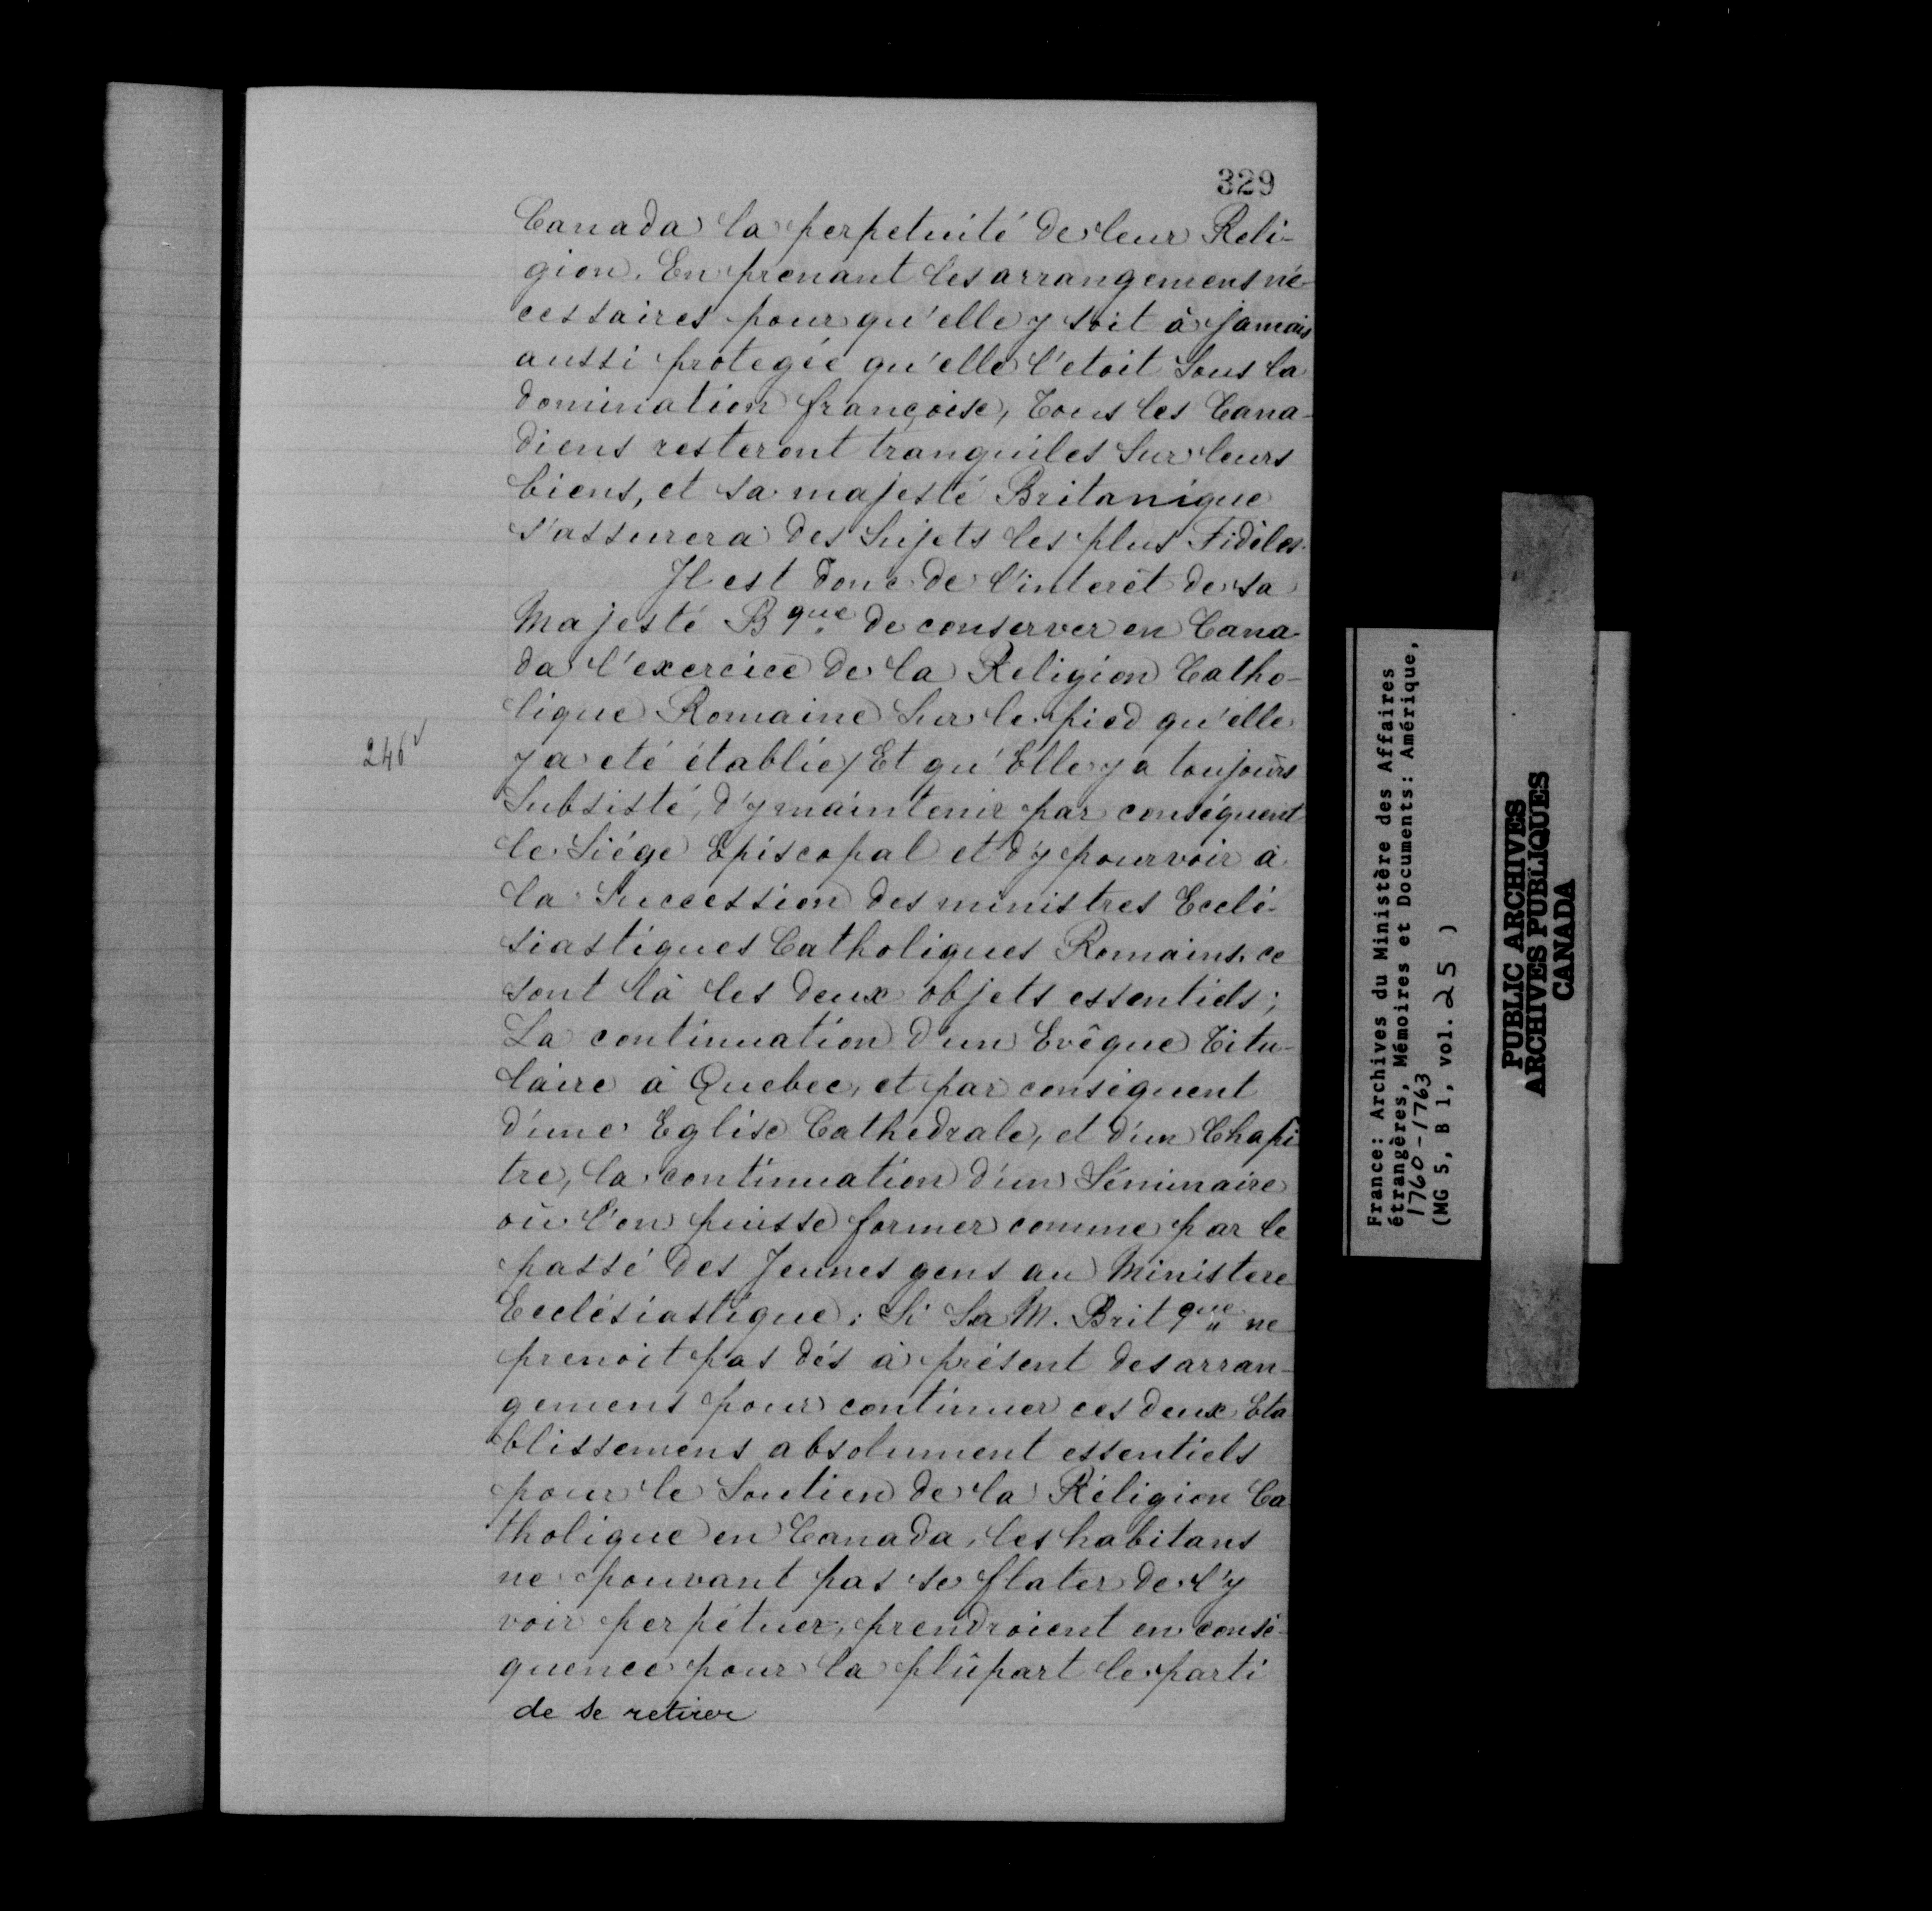 329
Canada la perpetuité de leur Reli-
gion. En prenant les arrangemens né-
cessaires pour qu'elle y soit à jamais
aussi protegée qu'elle l'etoit Sous la
domination françoise, Tous les Cana-
diens resteront tranquiles Sur leurs
biens, et sa majesté Britanique
s'assurera des Sujets les plus Fidèles.
Il est donc de l'interêt de sa
Majesté Bque de conserver en Cana-
da l'exercice de la Religion Catho-
lique Romaine Sur le pied qu'elle
246v
y a eté établie / Et qu'Elle y a toujours
Subsisté, d'y maintenir par conséquent
le Siége Episcopal et d'y pourvoir à
la Succession des ministres Ecclé-
siastiques Catholiques Romains. ce
sont là les deux objets essentiels;
La continuation d'un Evêque Titu-
laire à Quebec, et par conséquent
d'une Eglise Cathedrale, et d'un Chapi
tre, la continuation d'un Séminaire
où l'on puisse former comme par le
passé des Jeunes gens au Ministere
Ecclésiastique; Si Sa M. Britque ne
prenoit pas dés à présent des arran-
gemens pour continuer ces deux Eta
blissemens absolument essentiels
pour le Soutien de la Réligion Ca
tholique en Canada, les habitans
ne pouvant pas se flater de l'y
voir perpétuer, prendroient en consé-
quence pour la plûpart le parti
de se retirer
France: Archives du Ministère des Affaires
étrangères, Mémoires et Documents: Amérique,
1760-1763
(MG 5, B 1, vol. 25 )
PUBLIC ARCHIVES
ARCHIVES PUBLIQUES
CANADA